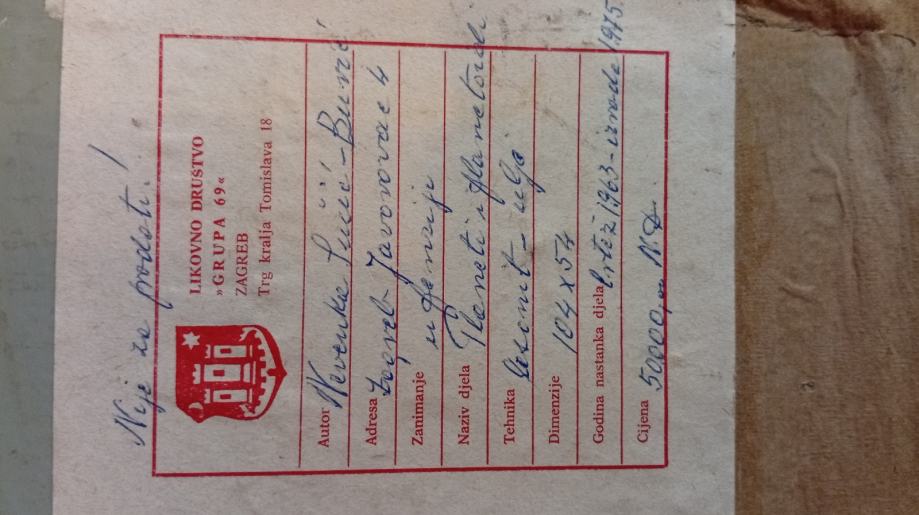 Nije za prodati!
LIKOVNO DRUŠTVO
»GRUPA 69«
ZAGREB
Trg kralja Tomislava 18
Autor Nevenka Burić
Adresa Zagreb Javorovac 4
Zanimanje u penziji
Naziv djela Planeti i planetoidi
Tehnika ulje
Dimenzije 104 x 54
Godina nastanka djela crtež 1963 - izrade 1975.
Cijena 50000, N.D.